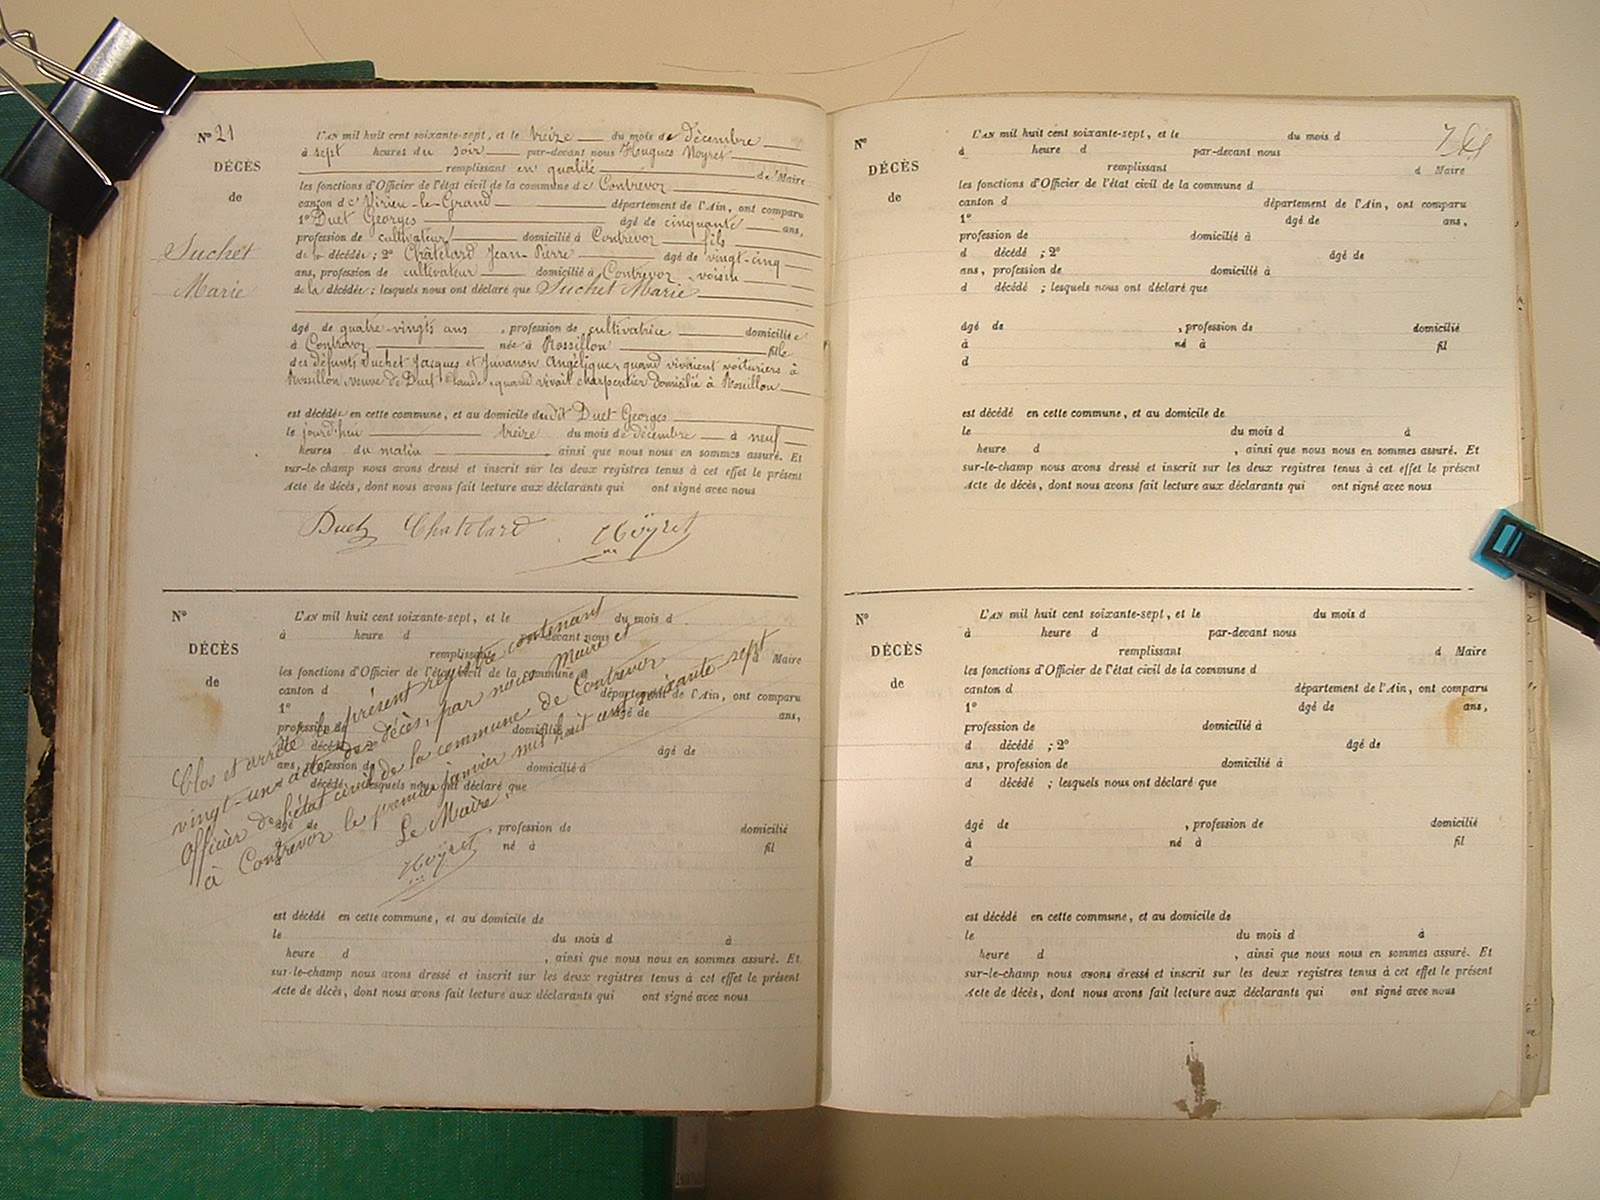 N° 21
DÉCÈS
de
Suchet
Marie
L'AN mil huit cent soixante-sept, et le treize du mois de Décembre
à sept heures du soir par-devant nous Hugues Noyret
remplissant en qualité de Maire
les fonctions d'Officier de l'état civil de la commune de Contrevoz
canton de Virieu-le-Grand département de l'Ain, ont comparu
1° Duet Georges âgé de cinquante ans,
profession de cultivateur domicilié à Contrevoz fils
de la décédée ; 2° Châtelard Jean-Pierre âgé de vingt-cinq
ans, profession de cultivateur domicilié à Contrevoz voisin
de la décédée ; lesquels nous ont déclaré que Suchet Marie
âgé de quatre-vingts ans , profession de cultivatrice domiciliée
à Contrevoz née à Rossillon fille
des défunts Suchet Jacques et Angélique, quand vivaient voituriers à
veuve de Duet Claude, quand vivait charpentier domicilié à
est décédée en cette commune, et au domicile dudit Duet Georges
le jourd'hui treize du mois de décembre à neuf
heures du matin , ainsi que nous nous en sommes assuré. Et
sur-le-champ nous avons dressé et inscrit sur les deux registres tenus à cet effet le présent
Acte de décès, dont nous avons fait lecture aux déclarants qui ont signé avec nous
Duet Chatelard Noÿret
N°
DÉCÈS
de
L'AN mil huit cent soixante-sept, et le du mois d
à heure d devant nous
remplissant d Maire
les fonctions d'Officier de l'état civil de la commune d
canton d département de l'Ain, ont comparu
1° âgé de ans,
profession de domicilié à
d décédé ; 2° âgé de
ans, profession de domicilié à
d décédé ; lesquels nous ont déclaré que
âgé de , profession de domicilié
à né à fil
Clos et arrêté le présent registre contenant
vingt-un actes de décès, par nous Maire et
Officier de l'état civil de la commune de Contrevoz
à Contrevoz le premier janvier mil huit cent soixante sept
Le Maire,
Noÿret
est décédé en cette commune, et au domicile de
le du mois d à
heure d , ainsi que nous nous en sommes assuré. Et
sur-le-champ nous avons dressé et inscrit sur les deux registres tenus à cet effet le présent
Acte de décès, dont nous avons fait lecture aux déclarants qui ont signé avec nous
N°
DÉCÈS
de
L'AN mil huit cent soixante-sept, et le du mois d
à heure d par-devant nous
remplissant d Maire
les fonctions d'Officier de l'état civil de la commune d
canton d département de l'Ain, ont comparu
1° âgé de ans,
profession de domicilié à
d décédé ; 2° âgé de
ans, profession de domicilié à
d décédé ; lesquels nous ont déclaré que
âgé de , profession de domicilié
à né à fil
d
est décédé en cette commune, et au domicile de
le du mois d à
heure d , ainsi que nous nous en sommes assuré. Et
sur-le-champ nous avons dressé et inscrit sur les deux registres tenus à cet effet le présent
Acte de décès, dont nous avons fait lecture aux déclarants qui ont signé avec nous
N°
DÉCÈS
de
L'AN mil huit cent soixante-sept, et le du mois d
à heure d par-devant nous
remplissant d Maire
les fonctions d'Officier de l'état civil de la commune d
canton d département de l'Ain, ont comparu
1° âgé de ans,
profession de domicilié à
d décédé ; 2° âgé de
ans, profession de domicilié à
d décédé ; lesquels nous ont déclaré que
âgé de , profession de domicilié
à né à fil
d
est décédé en cette commune, et au domicile de
le du mois d à
heure d , ainsi que nous nous en sommes assuré. Et
sur-le-champ nous avons dressé et inscrit sur les deux registres tenus à cet effet le présent
Acte de décès, dont nous avons fait lecture aux déclarants qui ont signé avec nous